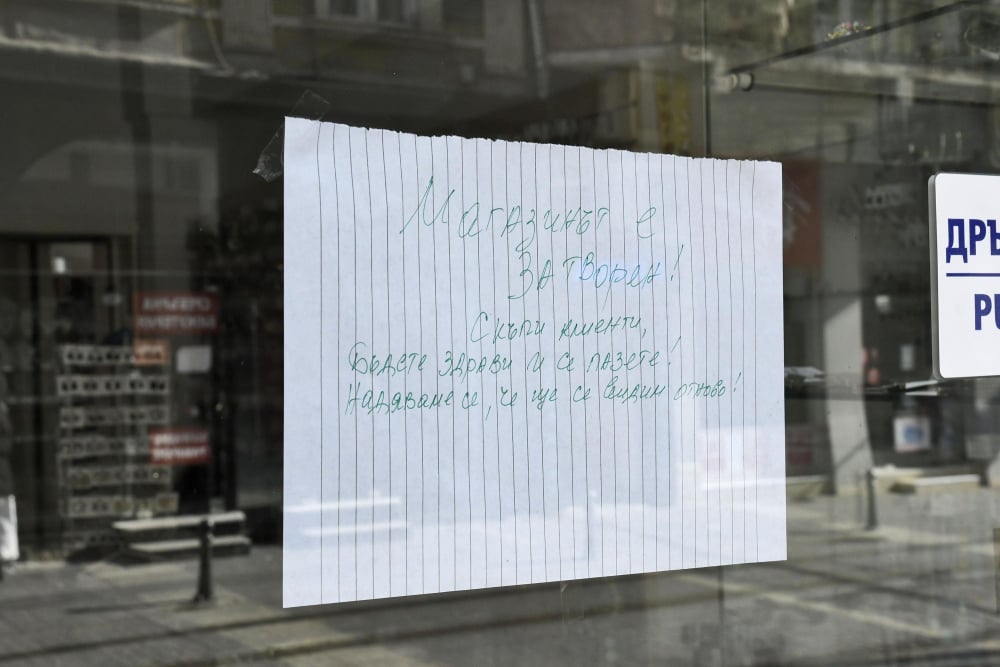 Магазинът е
Затворен!
Скъпи клиенти,
Бъдете здрави и се пазете!
Надяваме се, че ще се видим отново!
ДРЪ
PU